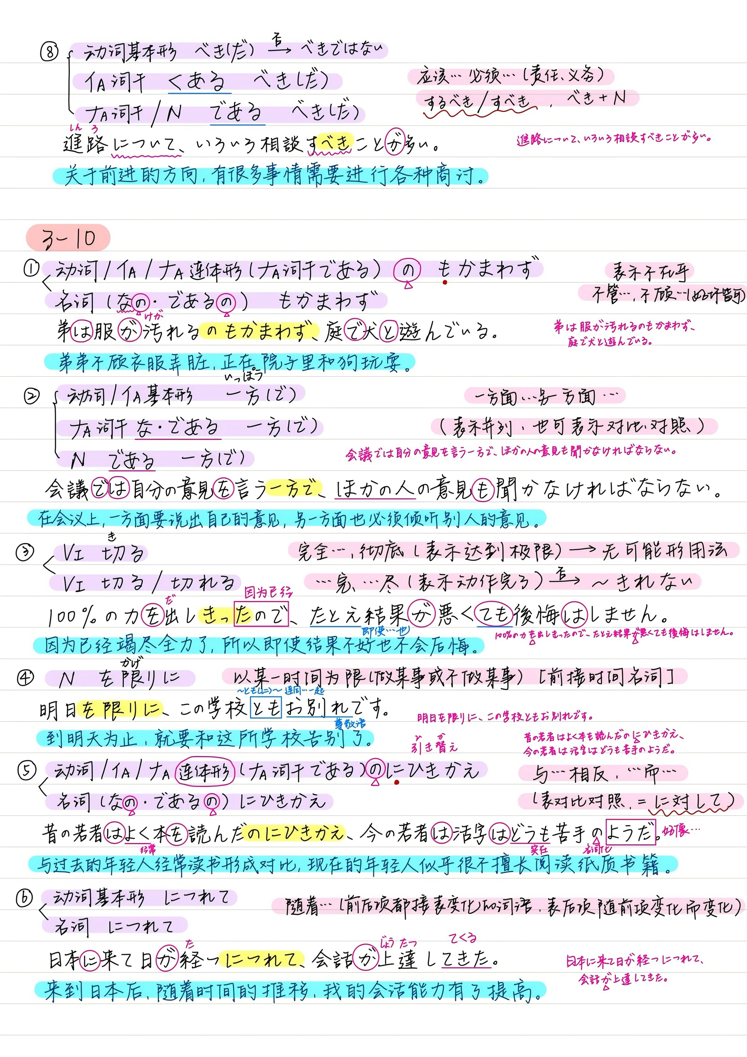 ⑧ 动词基本形 べき(だ) 否→ べきではない
イA词干 くある べき(だ) 应该…必须…(责任、义务)
ナA词干/N である べき(だ) するべき/すべき、べき+N
しんろ
進路について、いろいろ相談すべきことが多い。 進路について、いろいろ相談すべきことが多い。
关于前进的方向,有很多事情需要进行各种商讨。
3-10
① 动词/イA/ナA 连体形(ナA词干である) の もかまわず 表示不在乎
名词(なの・であるの) もかまわず 不管…,不顾…
けが
弟は服が汚れるのもかまわず、庭で犬と遊んでいる。 弟は服が汚れるのもかまわず、
庭で犬と遊んでいる。
弟弟不顾衣服弄脏,正在院子里和狗玩耍。
いっぽう
② 动词/イA基本形 一方(で) 一方面…另一方面…
ナA词干 な・である 一方(で) (表示并列,也可表示对比、对照)
N である 一方(で) 会議では自分の意見を言う一方で、ほかの人の意見も聞かなければならない。
会議では自分の意見を言う一方で、ほかの人の意見も聞かなければならない。
在会议上,一方面要说出自己的意见,另一方面也必须倾听别人的意见。
き
③ VI 切る 完全…,彻底(表示达到极限)→无可能形用法
VI 切る/切れる …完、…尽(表示动作完了)否→~きれない
だ 因为已经
100%の力を出しきったので、たとえ結果が悪くても後悔はしません。
即使…也 100%の力を出しきったので、たとえ結果が悪くても後悔はしません。
因为已经竭尽全力了,所以即使结果不好也不会后悔。
かぎ
④ N を限りに 以某一时间为限(做某事或不做某事)[前接时间名词]
明日を限りに、この学校ともお別れです。
明日を限りに、この学校ともお別れです。
到明天为止,就要和这所学校告别了。
昔の若者はよく本を読んだのにひきかえ、
今の若者は活字はどうも苦手のようだ。
引き替え
⑤ 动词/イA/ナA 连体形(ナA词干である)のにひきかえ 与…相反,…而…
名词(なの・であるの)にひきかえ (表对比对照,=に対して)
昔の若者はよく本を読んだのにひきかえ、今の若者は活字はどうも苦手のようだ。好像…
与过去的年轻人经常读书形成对比,现在的年轻人似乎很不擅长阅读纸质书籍。
⑥ 动词基本形 につれて 随着…(前后项都接表变化的词语,表后项随前项变化而变化)
名词 につれて
た じょうたつ てくる
日本に来て日が経つにつれて、会話が上達してきた。 日本に来て日が経つにつれて、
会話が上達してきた。
来到日本后,随着时间的推移,我的会话能力有了提高。